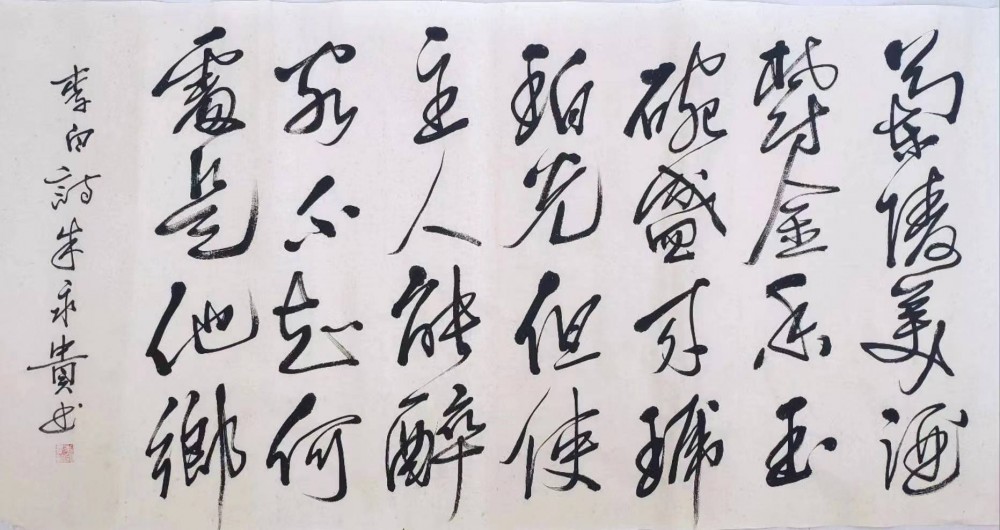 蘭陵美酒
鬱金香玉
碗盛来琥
珀光但使
主人能醉
客不知何
處是他鄉
李白詩朱永貴书